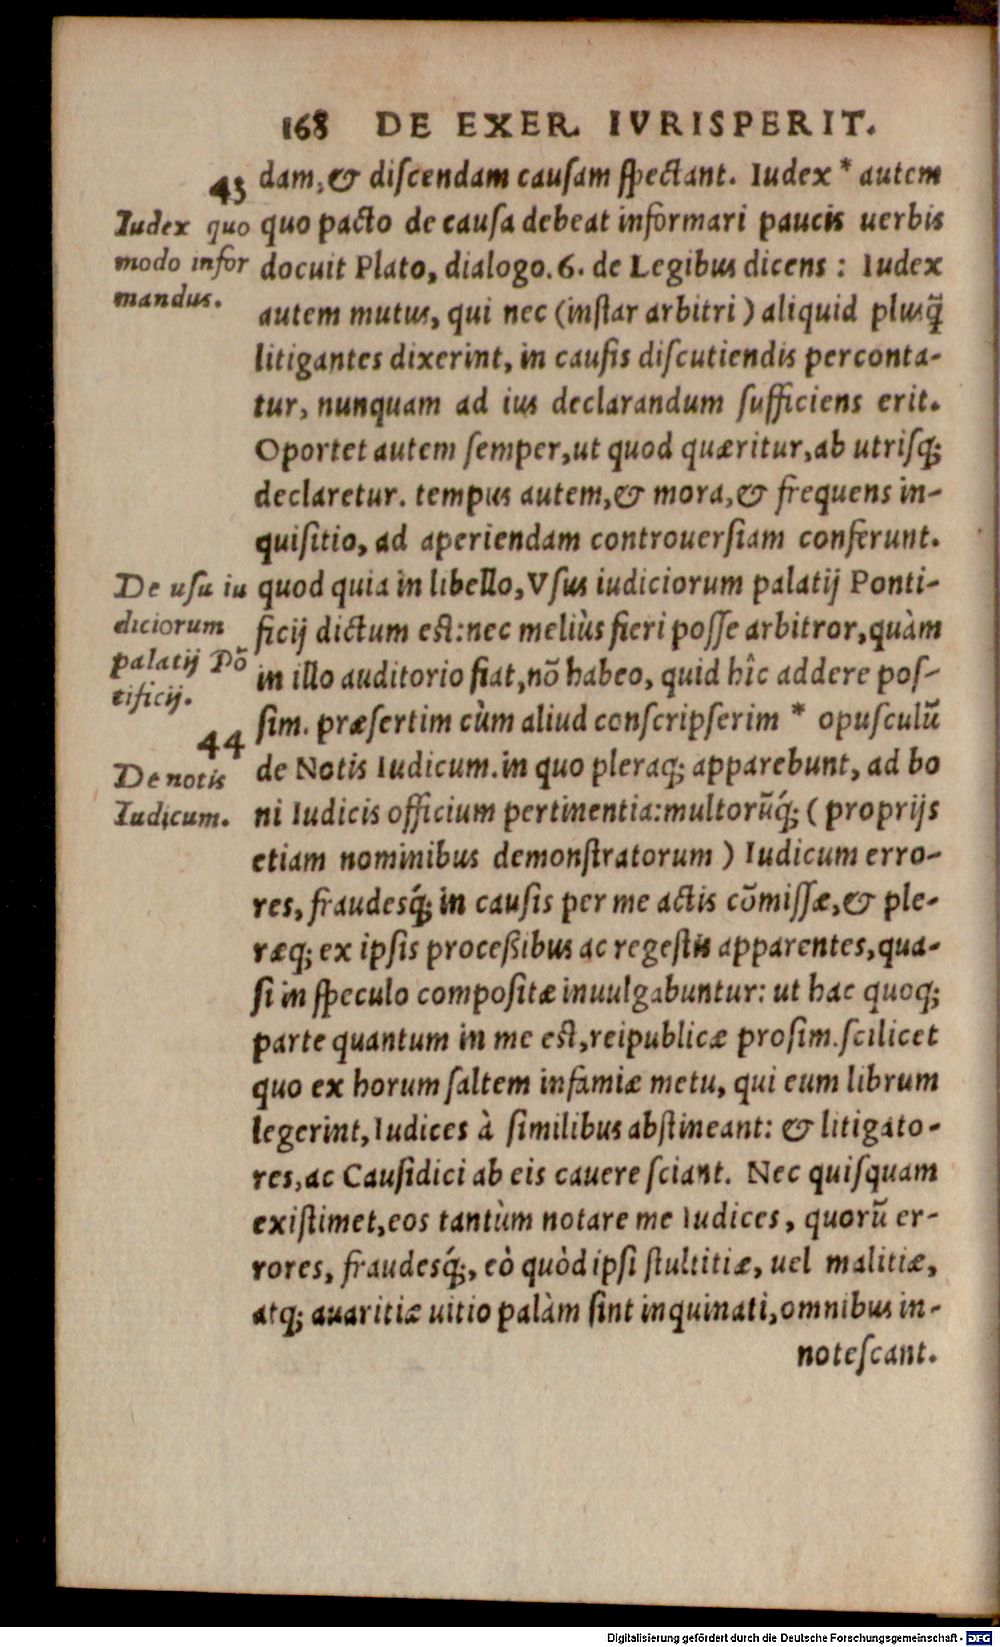 168 DE EXER. IVRISPERIT.
43
Iudex quo
modo infor
mandus.
dam, & diſcendam cauſam ſpectant. Iudex * autem
quo pacto de cauſa debeat informari paucis uerbis
docuit Plato, dialogo. 6. de Legibus dicens : Iudex
autem mutus, qui nec (inſtar arbitri) aliquid pluſq̃
litigantes dixerint, in cauſis diſcutiendis perconta-
tur, nunquam ad ius declarandum ſufficiens erit.
Oportet autem ſemper, ut quod quæritur, ab utriſq;
declaretur. tempus autem, & mora, & frequens in-
quiſitio, ad aperiendam controuerſiam conferunt.
De uſu iu
diciorum
palatij Põ
tificij.
quod quia in libello, Vſus iudiciorum palatij Ponti-
ficij dictum est: nec meliùs fieri poſſe arbitror, quàm
in illo auditorio fiat, nõ habeo, quid hîc addere poſ-
ſim. præſertim cùm aliud conſcripſerim * opuſculũ
44
De notis
Iudicum.
de Notis Iudicum. in quo pleraq; apparebunt, ad bo
ni Iudicis officium pertinentia: multorũq́; (proprijs
etiam nominibus demonſtratorum) Iudicum erro-
res, fraudesq́; in cauſis per me actis cõmiſſæ, & ple-
ræq; ex ipſis proceßibus ac regeſtis apparentes, qua-
ſi in ſpeculo compoſitæ inuulgabuntur: ut hac quoq;
parte quantum in me est, reipublicæ proſim. ſcilicet
quo ex horum ſaltem infamiæ metu, qui eum librum
legerint, Iudices à ſimilibus abſtineant: & litigato-
res, ac Cauſidici ab eis cauere ſciant. Nec quiſquam
exiſtimet, eos tantùm notare me Iudices, quorũ er-
rores, fraudesq́;, eò quòd ipſi ſtultitiæ, uel malitiæ,
atq; auaritiæ uitio palàm ſint inquinati, omnibus in-
noteſcant.
Digitalisierung gefördert durch die Deutsche Forschungsgemeinschaft - DFG